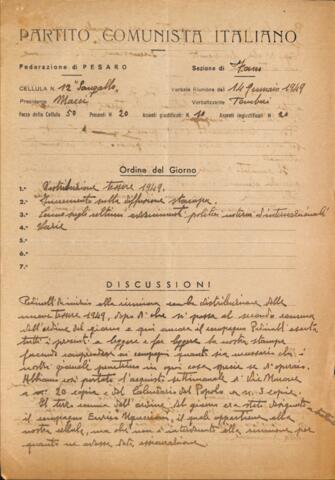 PARTITO COMUNISTA ITALIANO
Federazione di PESARO Sezione di Fano
CELLULA N. 12 Sangallo Verbale Riunione del 14 Gennaio 1949
Presidente Macci Verbalizzante Tomburi
Forza della Cellula 50 Presenti N. 20 Assenti giustificati N. 10 Assenti ingiustificati N. 20
Ordine del Giorno
1.° Distribuzione tessere 1949.
2.° Incremento sulla diffusione stampa.
3.° Cenno sugli ultimi avvenimenti politici interni ed internazionali
4.° Varie
5.°
6.°
7.°
DISCUSSIONI
inizio alla riunione con la distribuzione delle
nuove tessere 1949, dopo di che si passa al secondo comma
dell'ordine del giorno e qui ancora il compagno esorta
tutti i presenti a leggere e far leggere la nostra stampa
facendo comprendere ai compagni quanto sia necessario che i
nostri giornali penetrino in ogni casa specie se d'operai.
Abbiamo così portato l'acquisto settimanale di Vie Nuove
a n° 20 copie e del Calendario del Popolo a n. 3 copie.
Il terzo comma dell'ordine del giorno era stato designato
il compagno Enrico il quale appartiene alla
nostra cellula, ma che non è intervenuto alla riunione per
quanto ne avesse data assicurazione